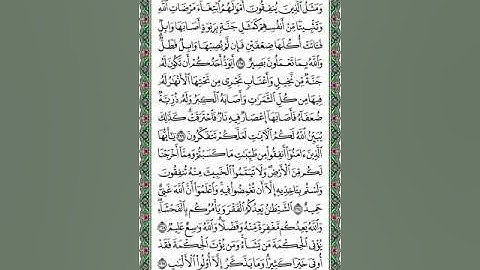 وَمَثَلُ ٱلَّذِينَ يُنفِقُونَ أَمۡوَٰلَهُمُ ٱبۡتِغَآءَ مَرۡضَاتِ ٱللَّهِ
وَتَثۡبِيتٗا مِّنۡ أَنفُسِهِمۡ كَمَثَلِ جَنَّةِۭ بِرَبۡوَةٍ أَصَابَهَا وَابِلٞ
فَـَٔاتَتۡ أُكُلَهَا ضِعۡفَيۡنِ فَإِن لَّمۡ يُصِبۡهَا وَابِلٞ فَطَلّٞۗ
وَٱللَّهُ بِمَا تَعۡمَلُونَ بَصِيرٌ ٢٦٥ أَيَوَدُّ أَحَدُكُمۡ أَن تَكُونَ لَهُۥ
جَنَّةٞ مِّن نَّخِيلٖ وَأَعۡنَابٖ تَجۡرِي مِن تَحۡتِهَا ٱلۡأَنۡهَٰرُ لَهُۥ
فِيهَا مِن كُلِّ ٱلثَّمَرَٰتِ وَأَصَابَهُ ٱلۡكِبَرُ وَلَهُۥ ذُرِّيَّةٞ
ضُعَفَآءُ فَأَصَابَهَآ إِعۡصَارٞ فِيهِ نَارٞ فَٱحۡتَرَقَتۡۗ كَذَٰلِكَ
يُبَيِّنُ ٱللَّهُ لَكُمُ ٱلۡأٓيَٰتِ لَعَلَّكُمۡ تَتَفَكَّرُونَ ٢٦٦ يَٰٓأَيُّهَا
ٱلَّذِينَ ءَامَنُوٓاْ أَنفِقُواْ مِن طَيِّبَٰتِ مَا كَسَبۡتُمۡ وَمِمَّآ أَخۡرَجۡنَا
لَكُم مِّنَ ٱلۡأَرۡضِۖ وَلَا تَيَمَّمُواْ ٱلۡخَبِيثَ مِنۡهُ تُنفِقُونَ
وَلَسۡتُم بِـَٔاخِذِيهِ إِلَّآ أَن تُغۡمِضُواْ فِيهِۚ وَٱعۡلَمُوٓاْ أَنَّ ٱللَّهَ غَنِيٌّ
حَمِيدٌ ٢٦٧ ٱلشَّيۡطَٰنُ يَعِدُكُمُ ٱلۡفَقۡرَ وَيَأۡمُرُكُم بِٱلۡفَحۡشَآءِۖ
وَٱللَّهُ يَعِدُكُم مَّغۡفِرَةٗ مِّنۡهُ وَفَضۡلٗاۗ وَٱللَّهُ وَٰسِعٌ عَلِيمٞ ٢٦٨
يُؤۡتِي ٱلۡحِكۡمَةَ مَن يَشَآءُۚ وَمَن يُؤۡتَ ٱلۡحِكۡمَةَ فَقَدۡ
أُوتِيَ خَيۡرٗا كَثِيرٗاۗ وَمَا يَذَّكَّرُ إِلَّآ أُوْلُواْ ٱلۡأَلۡبَٰبِ ٢٦٩